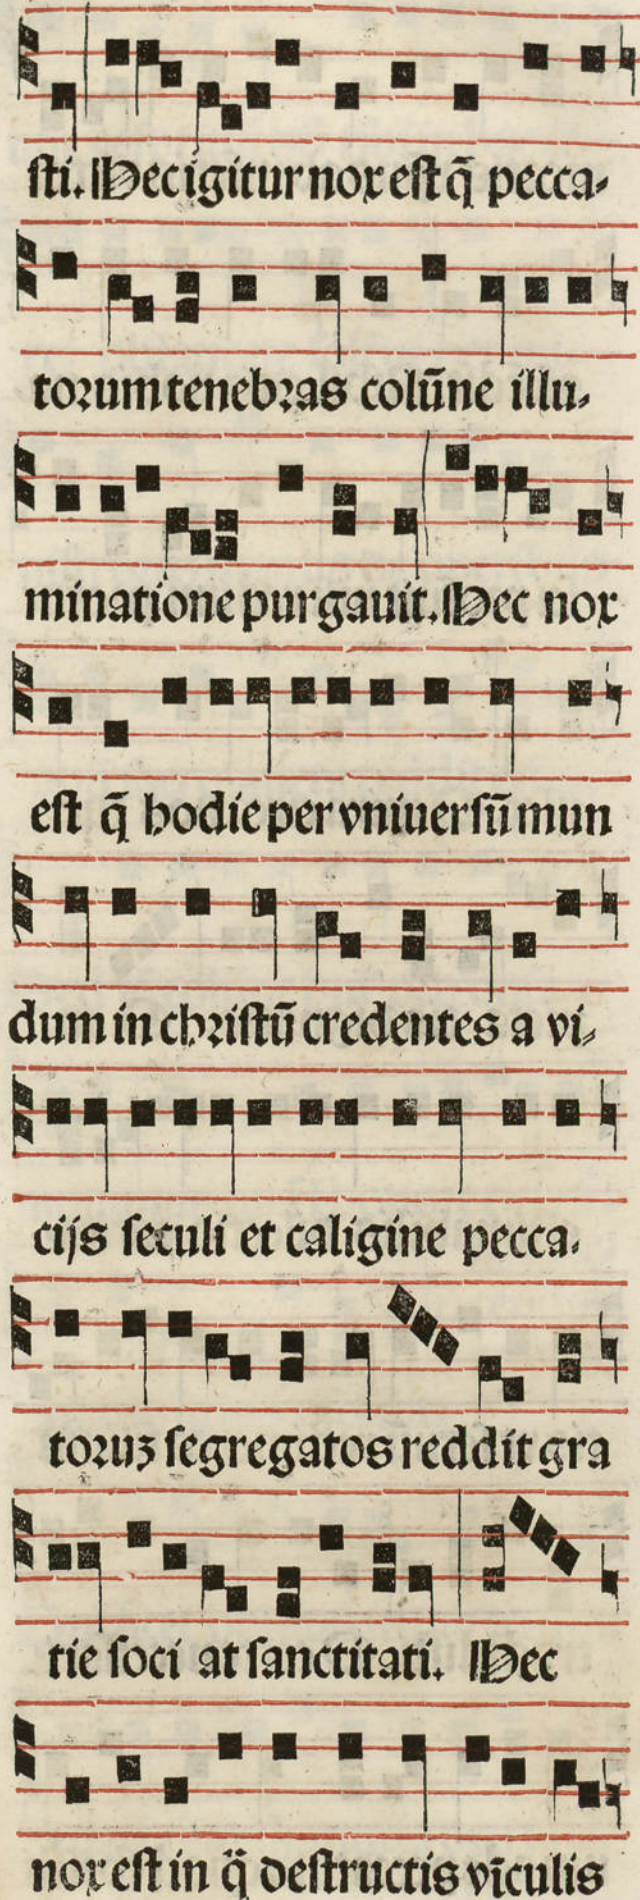 sti. Hec igitur nox est q̄ pecca-
torum tenebras colūne illu-
minatione purgauit. Hec nox
est q̄ hodie per vniuersū mun
dum in christū credentes a vi-
cijs seculi et caligine pecca-
toruꝫ segregatos reddit gra
tie soci at sanctitati. Hec
nox est in q̄ destructis vīculis